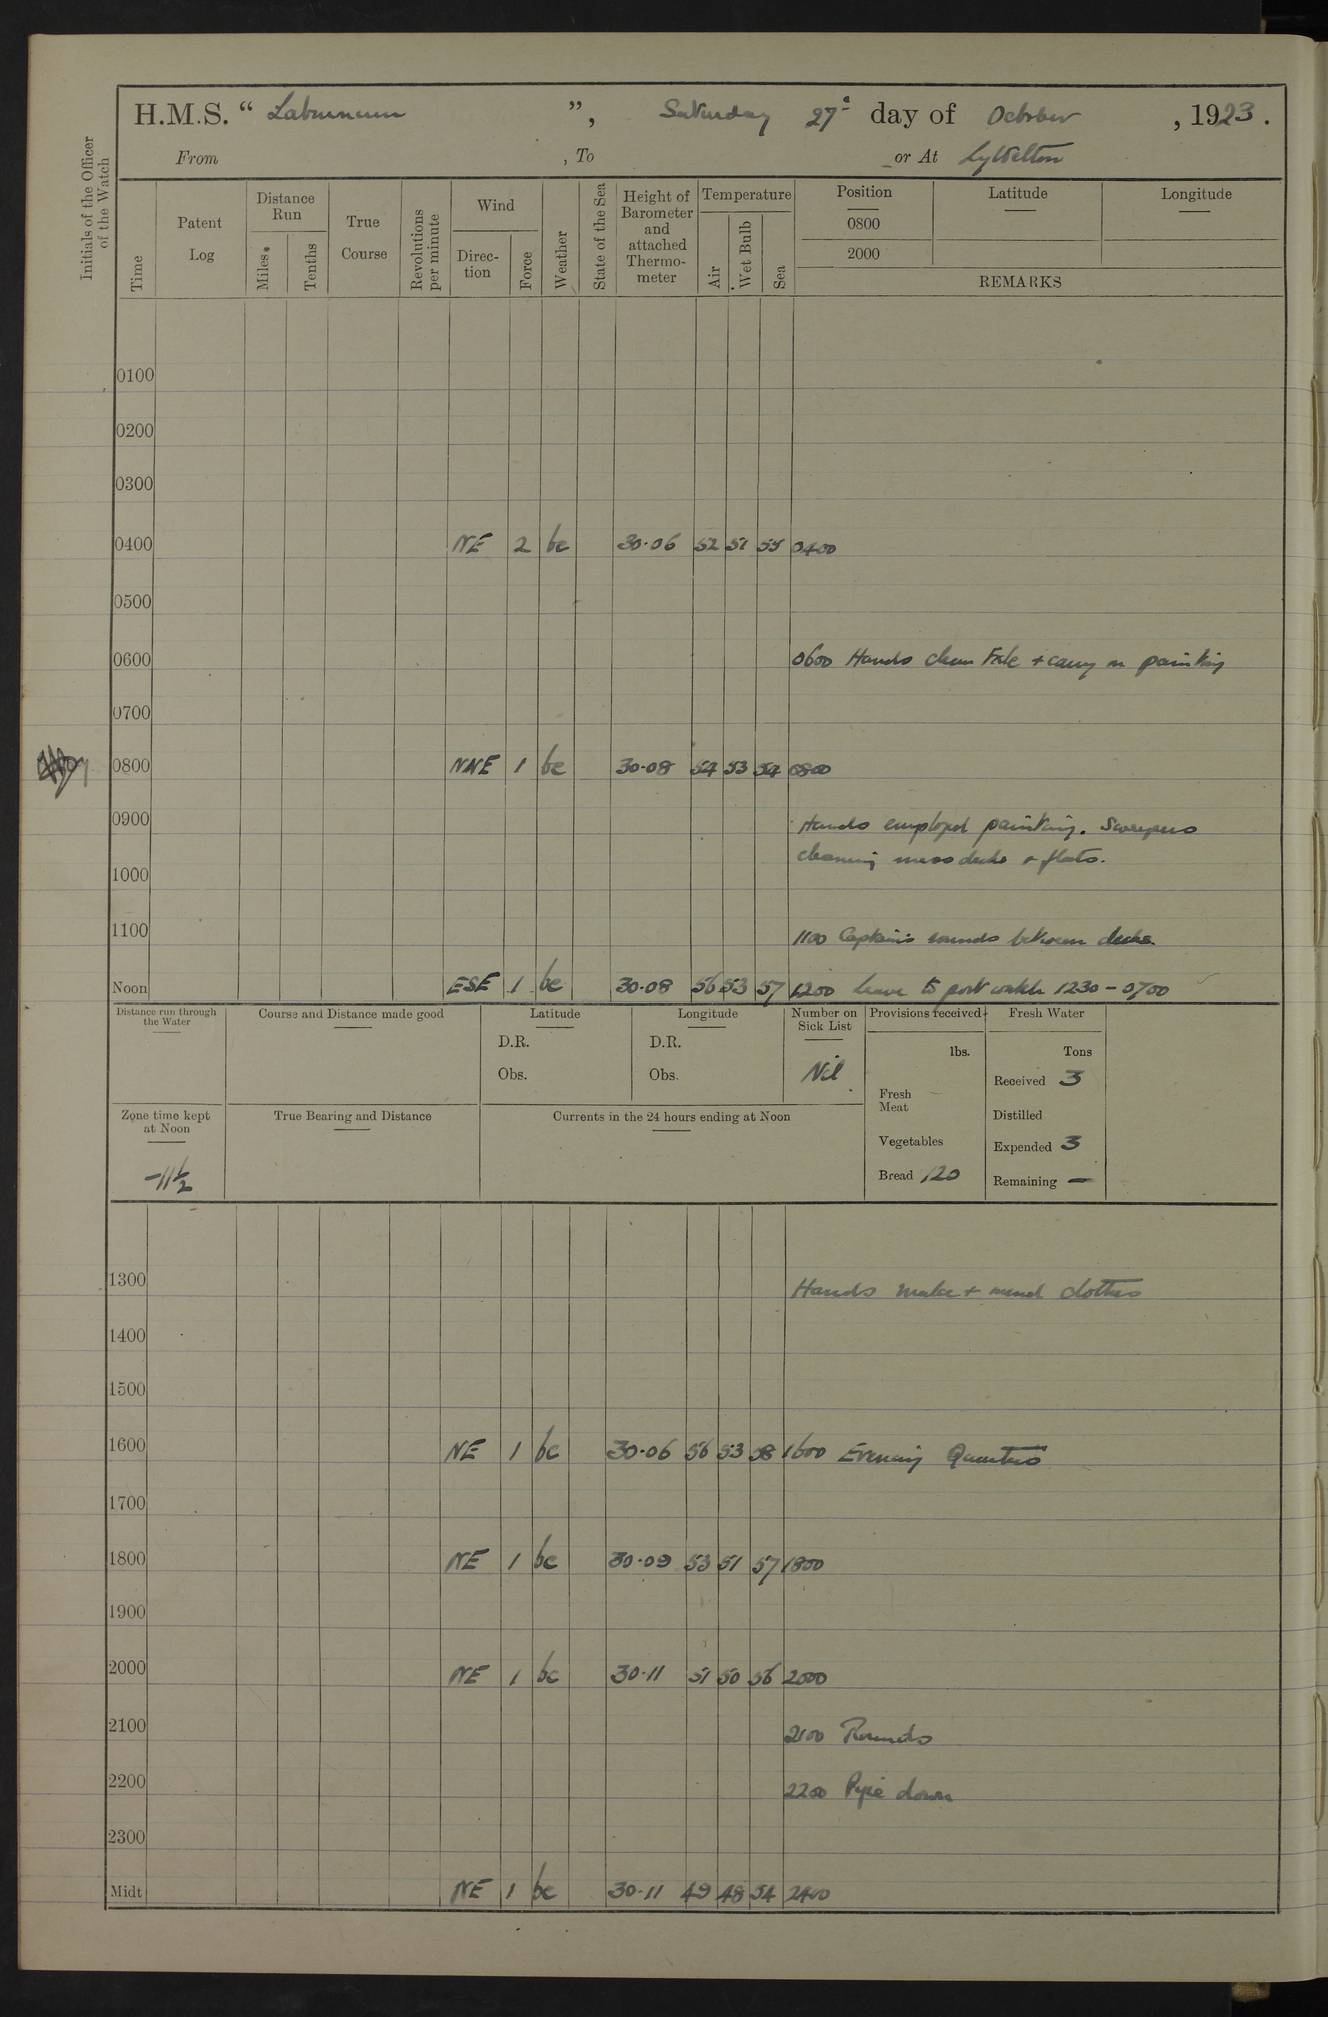 H.M.S. “ Laburnum ”, Saturday 27th day of October , 1923 .
From , To or At Lyttelton
Initials of the Officer of the Watch
Time
Patent Log
Distance Run
Miles
Tenths
True Course
Revolutions per minute
Wind
Direc-tion
Force
Weather
State of the Sea
Height of Barometer and attached Thermo-meter
Temperature
Air
Wet Bulb
Sea
Position Latitude Longitude
0800
2000
REMARKS
0100
0200
0300
0400 NE 2 bc 30·06 52 51 55 0400
0500
0600 0600 Hands clean Fxle + carry on painting
0700
0800 NNE 1 bc 30·08 54 53 54 0800
0900 Hands employed painting. Sweepers
cleaning mess decks + flats.
1000
1100 1100 Captain's rounds between decks.
Noon ESE 1 bc 30·08 56 53 57 1200 Leave to port watch 1230 - 0700
Distance run through the Water
Course and Distance made good
Latitude
D.R.
Obs.
Longitude
D.R.
Obs.
Number on Sick List
Nil
Provisions received
lbs.
Fresh Meat —
Vegetables
Bread 120
Fresh Water
Tons
Received 3
Distilled
Expended 3
Remaining —
Zone time kept at Noon
-11½
True Bearing and Distance
Currents in the 24 hours ending at Noon
1300 Hands make + mend clothes
1400
1500
1600 NE 1 bc 30·06 56 53 58 1600 Evening Quarters
1700
1800 NE 1 bc 30·09 53 51 57 1800
1900
2000 NE 1 bc 30·11 51 50 56 2000
2100 2100 Rounds
2200 2200 Pipe down
2300
Midt NE 1 bc 30·11 49 48 54 2400